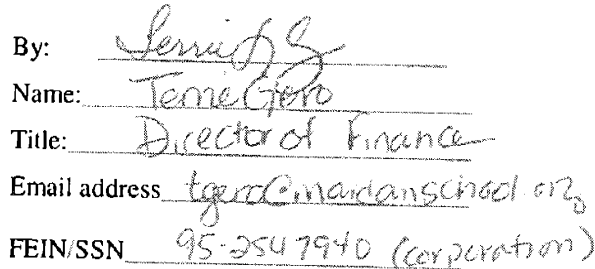 By:
Name: Terrie Gero
Title: Director of Finance
Email address tgero@mardanschool.org
FEIN/SSN 95-2547940 (corporation)